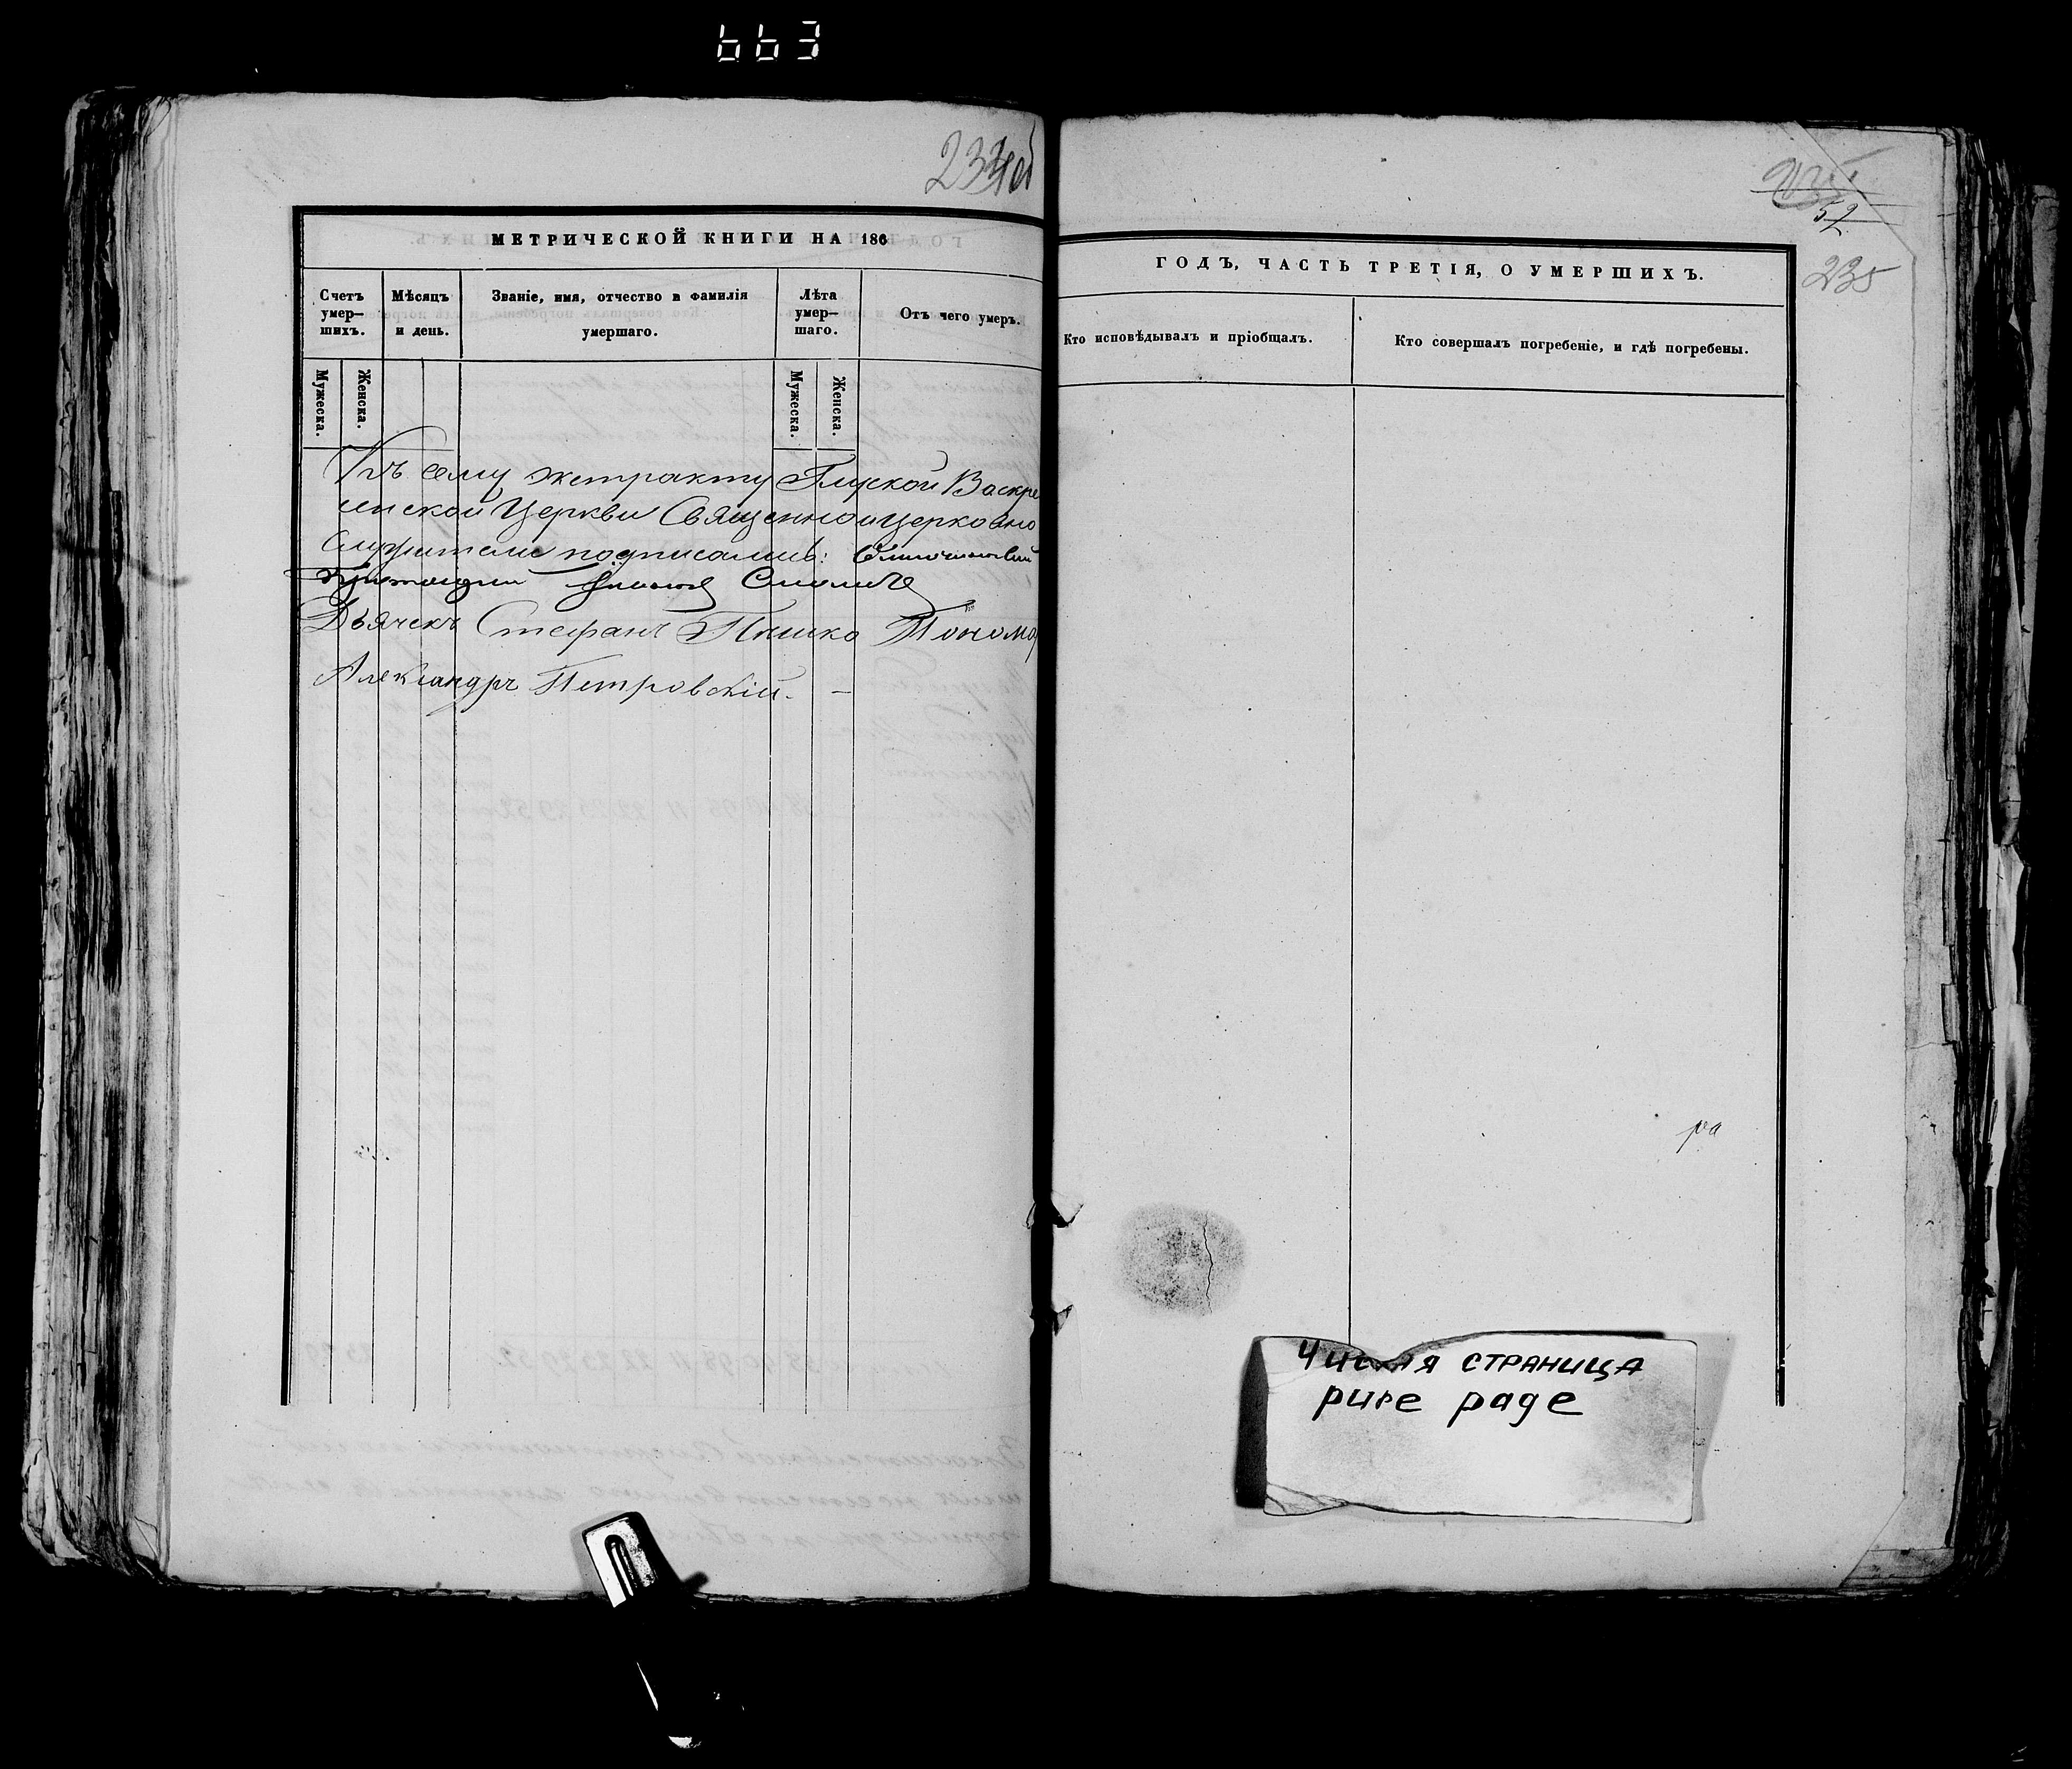 663
234об
МЕТРИЧЕСКОЙ КНИГИ НА 186
Счетъ умер— шихъ.
Мѣсяцъ и день.
Званіе, имя, отчество и фамилія умершаго.
Лѣта умер— шаго.
Отъ чего умеръ.
Мужеска.
Женска.
Мужеска.
Женска.
Къ сему экстракту Глуской Воскре
сенской Церкви Священно и церковно
служители подписались:
Дьячекъ Стефанъ Пышко Понома
Александръ Петровскій. —
52
235
ГОДЪ, ЧАСТЬ ТРЕТІЯ, О УМЕРШИХЪ.
Кто исповѣдывалъ и пріобщалъ.
Кто совершалъ погребеніе, и гдѣ погребены.
ра
Чистая страница
pure page